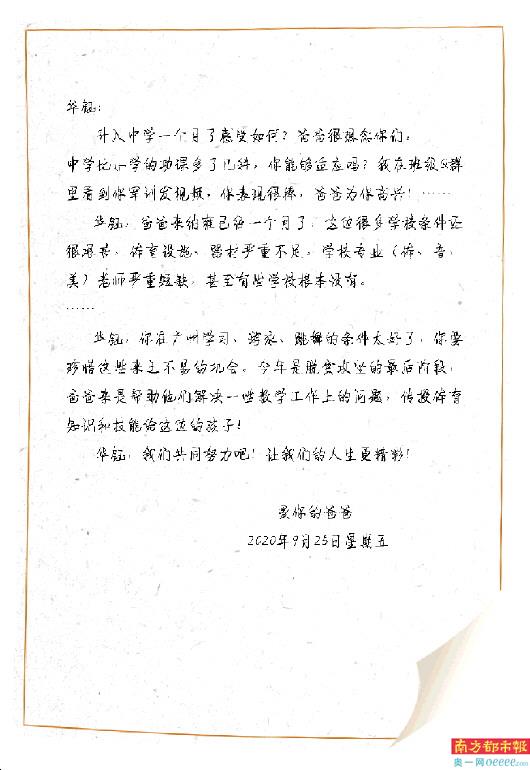 华钰：
升入中学一个月了感觉如何？爸爸很想念你们。
中学比小学的功课多了几科，你能够适应吗？我在班级Q群
里看到你军训发视频，你表现很棒，爸爸为你高兴！……
华钰，爸爸来纳雍已经一个月了，这边很多学校条件还
很艰苦，体育设施、器材严重不足，学校专业（体、音、
美）老师严重短缺，甚至有些学校根本没有。
……
华钰，你在广州学习、游泳、跳舞的条件太好了，你要
珍惜这些来之不易的机会。今年是脱贫攻坚的最后阶段，
爸爸来是帮助他们解决一些教学工作上的问题，传授体育
知识和技能给这边的孩子！
华钰，我们共同努力吧！让我们的人生更精彩！
爱你的爸爸
2020年9月25日星期五
南方都市報
奥一网oeeee.com